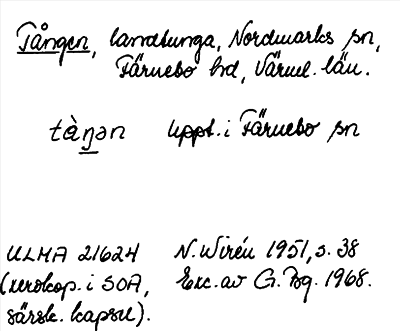 Tången, landtunga, Nordmarks sn,
Färnebo hd, Värml. län.
tàŋən uppt. i Färnebo sn
ULMA 21624 N. Wirén 1951, s. 38
(xerokop. i SOA, Exc. av G. Bg. 1968.
särsk. kapsel).